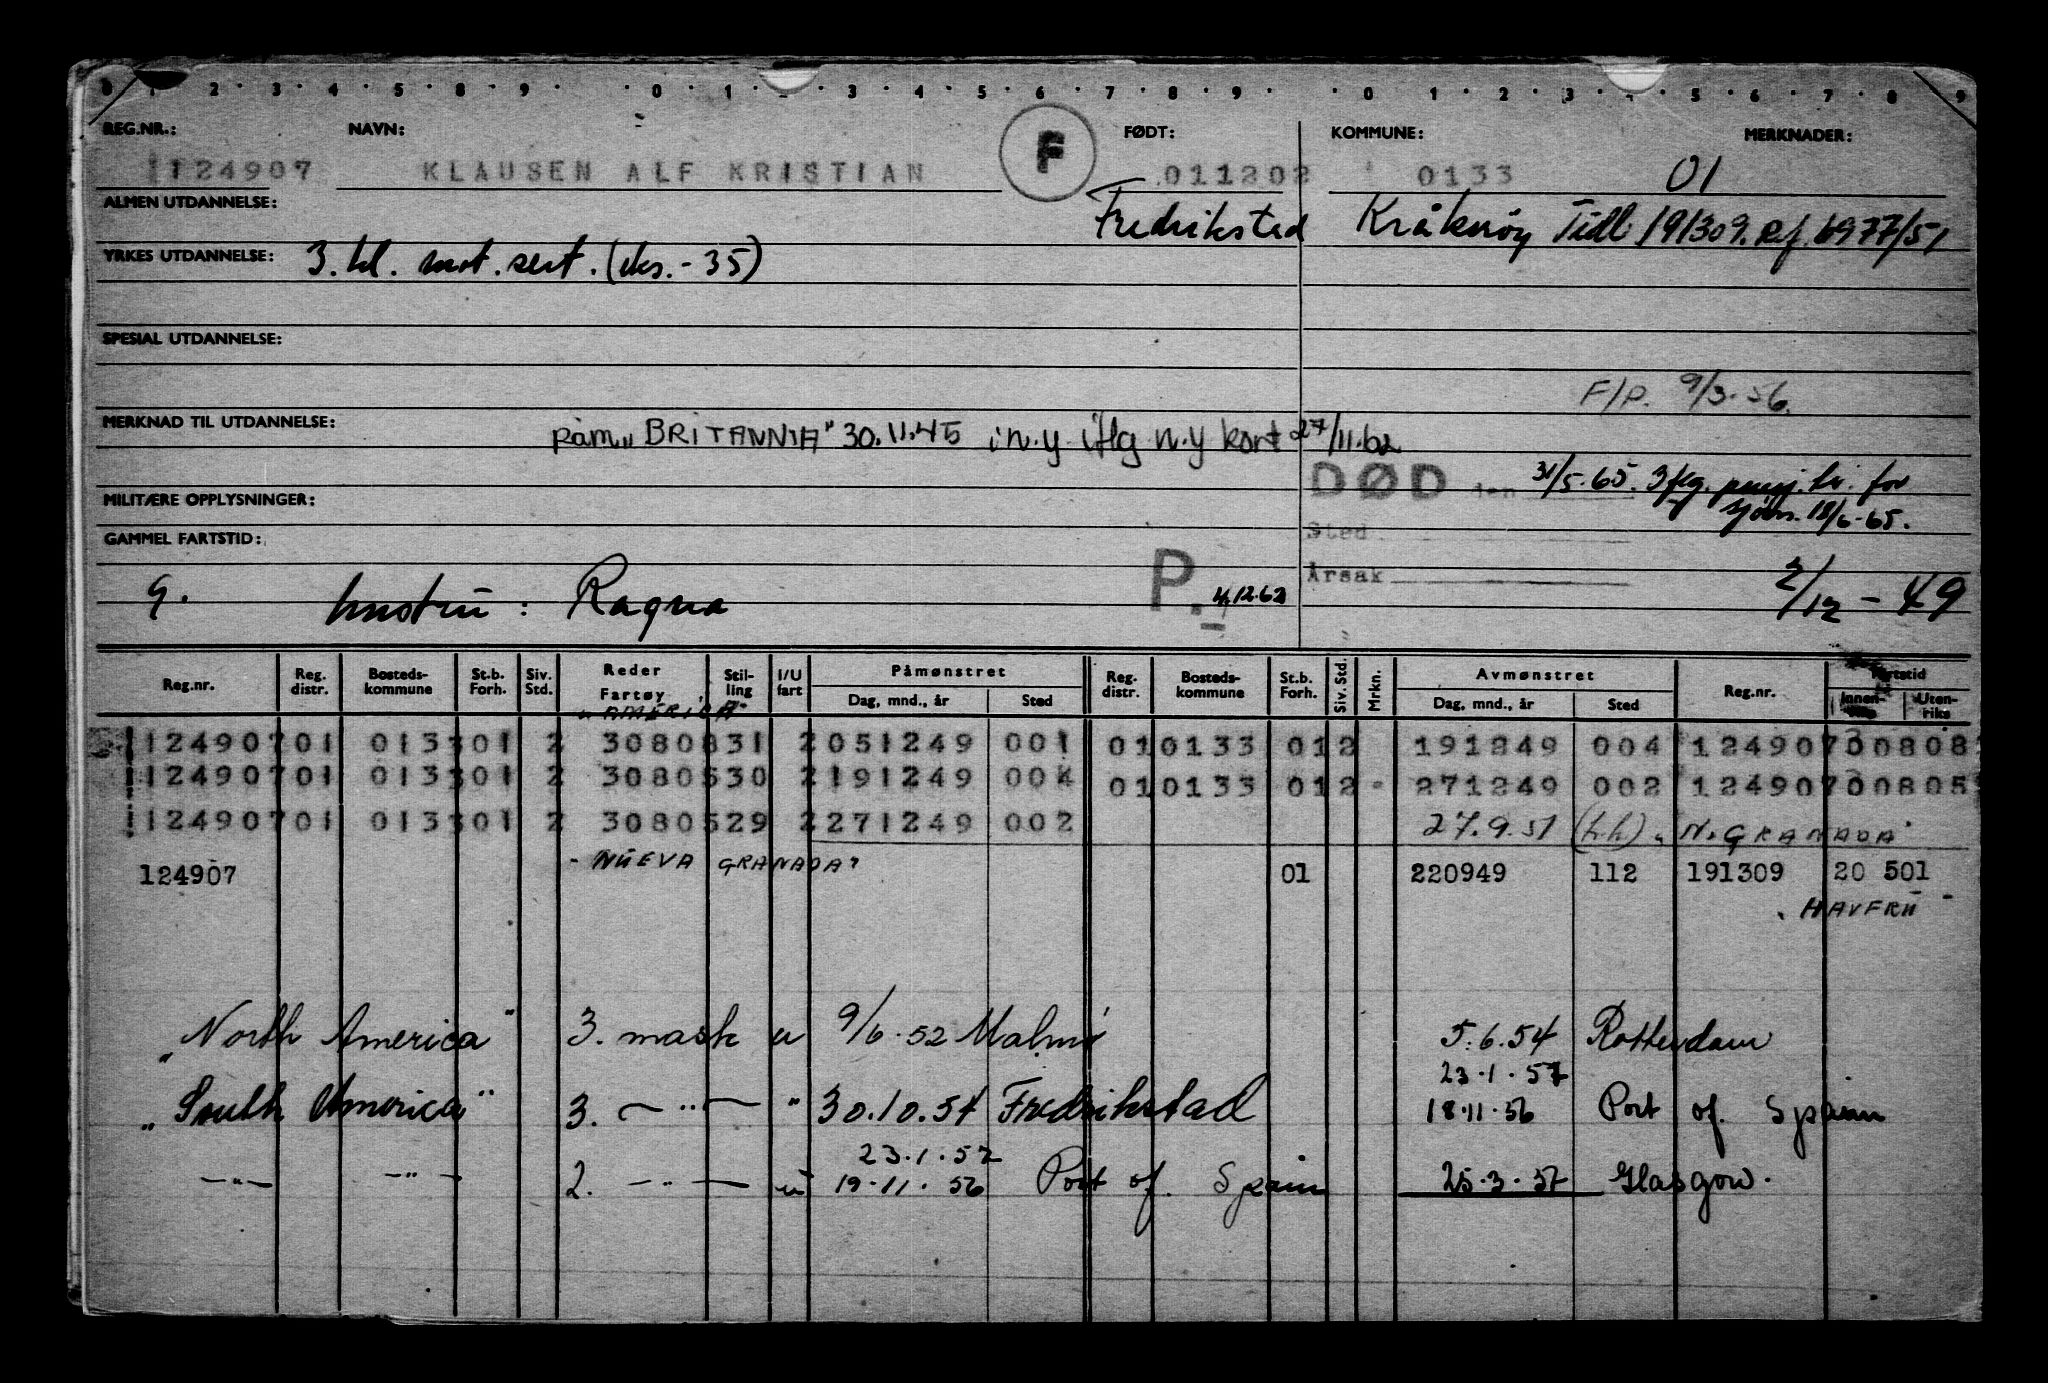 0 1 2 3 4 5 8 9 0 1 2 3 4 5 6 7 8 9 0 1 2 3 4 5 6 7 8 9
REG.NR.: NAVN: F FØDT: KOMMUNE: MERKNADER:
124907 KLAUSEN ALF KRISTIAN 011202 0133 01
ALMEN UTDANNELSE: Fredrikstad Kråkerøy Tidl 191309. Ref 6977/51
YRKES UTDANNELSE: 3. kl. mot. sert. (eks. - 35)
SPESIAL UTDANNELSE:
F/P. 9/3-56.
MERKNAD TIL UTDANNELSE: påm „BRITANNIA" 30.11.45 i n.y iflg n.y kort 27/11.62
DØD den 31/5-65. 3 flg. pensj. tr. for
MILITÆRE OPPLYSNINGER: sjøm. 18/6-65.
Sted
GAMMEL FARTSTID:
Årsak
g. hustru : Ragna P. 4.12.62 2/12 - 49
Reg.nr. Reg. distr. Bosteds-kommune St.b. Forh. Siv. Std. Reder Fartøy Stil-ling I/U fart Påmønstret Dag, mnd., år Sted Reg. distr. Bosteds-kommune St.b. Forh. Siv. Std. Mrkn. Avmønstret Dag, mnd., år Sted Reg.nr. Fartstid Innen- Uten-riks
„AMERICA"
124907 01 0133 01 2 3080831 2 051249 001 01 0133 01 2 191249 004 124907 00808
124907 01 0133 01 2 3080530 2 191249 004 01 0133 01 2 271249 002 124907 00805
124907 01 0133 01 2 3080529 2 271249 002 27.9.51 (h.h) „N. GRANADA"
„NUEVA GRANADA"
124907 01 220949 112 191309 20 501
„HAVFRU"
„North America" 3. mask u 9/6-52 Malmö 5.6.54 Rotterdam
23.1.57
„South America" 3. — " — " 30.10.54 Fredrikstad 18.11.56 Port of Spain
23.1.57
— " — — " — 2. — " — u 19.11.56 Port of Spain 25.3.57 Glasgow.